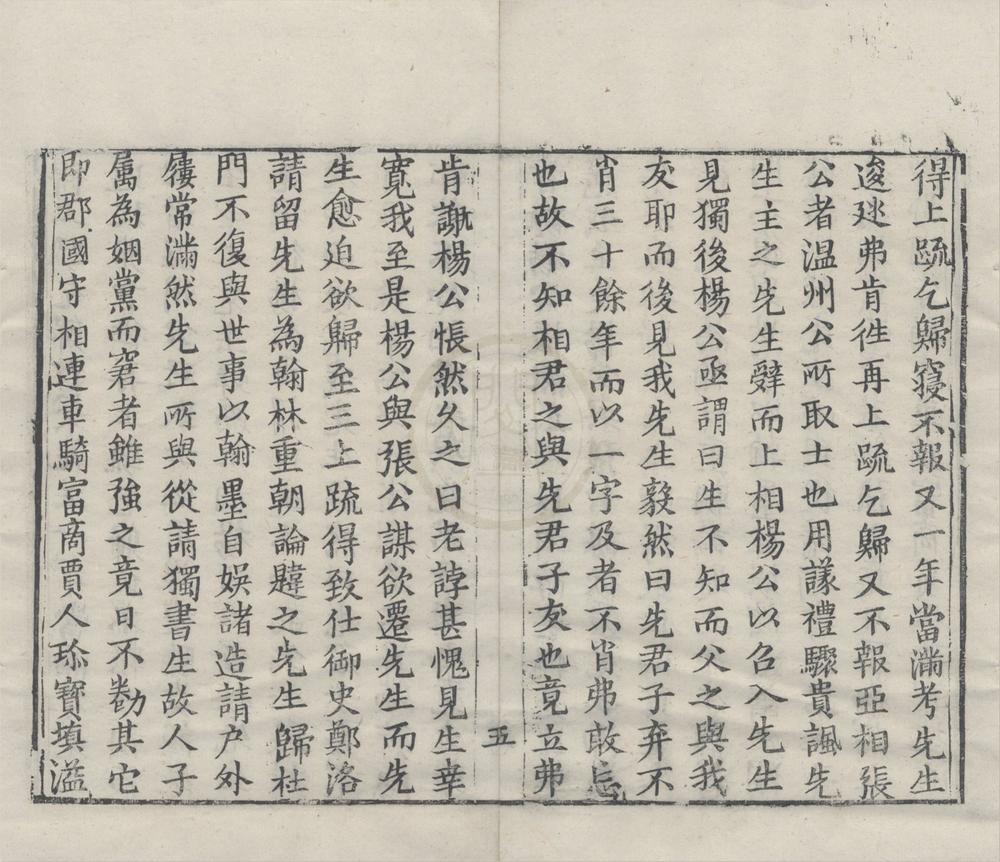 得上䟽乞歸寢不報又一年當滿考先生
逡廵弗肯徃再上䟽乞歸又不報亞相張
公者溫州公所取士也用議禮驟貴諷先
生主之先生辭而上相楊公以召入先生
見獨後楊公亟謂曰生不知而父之與我
友耶而後見我先生毅然曰先君子弃不
肖三十餘年而以一字及者不肖弗敢忘
也故不知相君之與先君子友也竟立弗
五
肯謝楊公悵然久之曰老誖甚愧見生幸
寬我至是楊公與張公謀欲遷先生而先
生愈迫欲歸至三上䟽得致仕御史鄭洛
請留先生為翰林重朝論韙之先生歸杜
門不復與世事以翰墨自娛諸造請户外
屨常滿然先生所與從請獨書生故人子
属為姻黨而窘者雖強之竟日不勌其它
即郡國守相連車騎富商賈人珎寶填溢